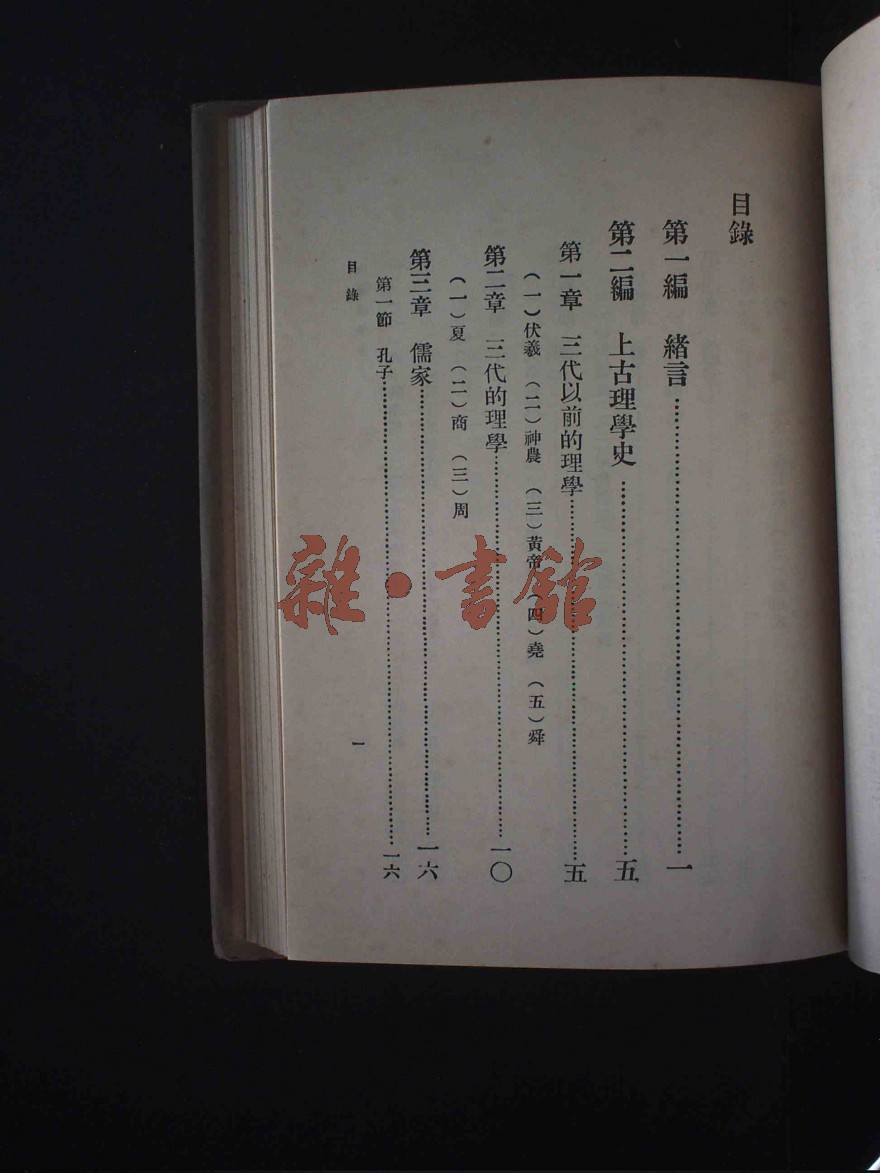 目錄
第一編 緒言……一
第二編 上古理學史……五
第一章 三代以前的理學……五
（一）伏羲 （二）神農 （三）黃帝 （四）堯 （五）舜
第二章 三代的理學……一〇
（一）夏 （二）商 （三）周
第三章 儒家……一六
第一節 孔子……一六
目錄
一
雜·書館